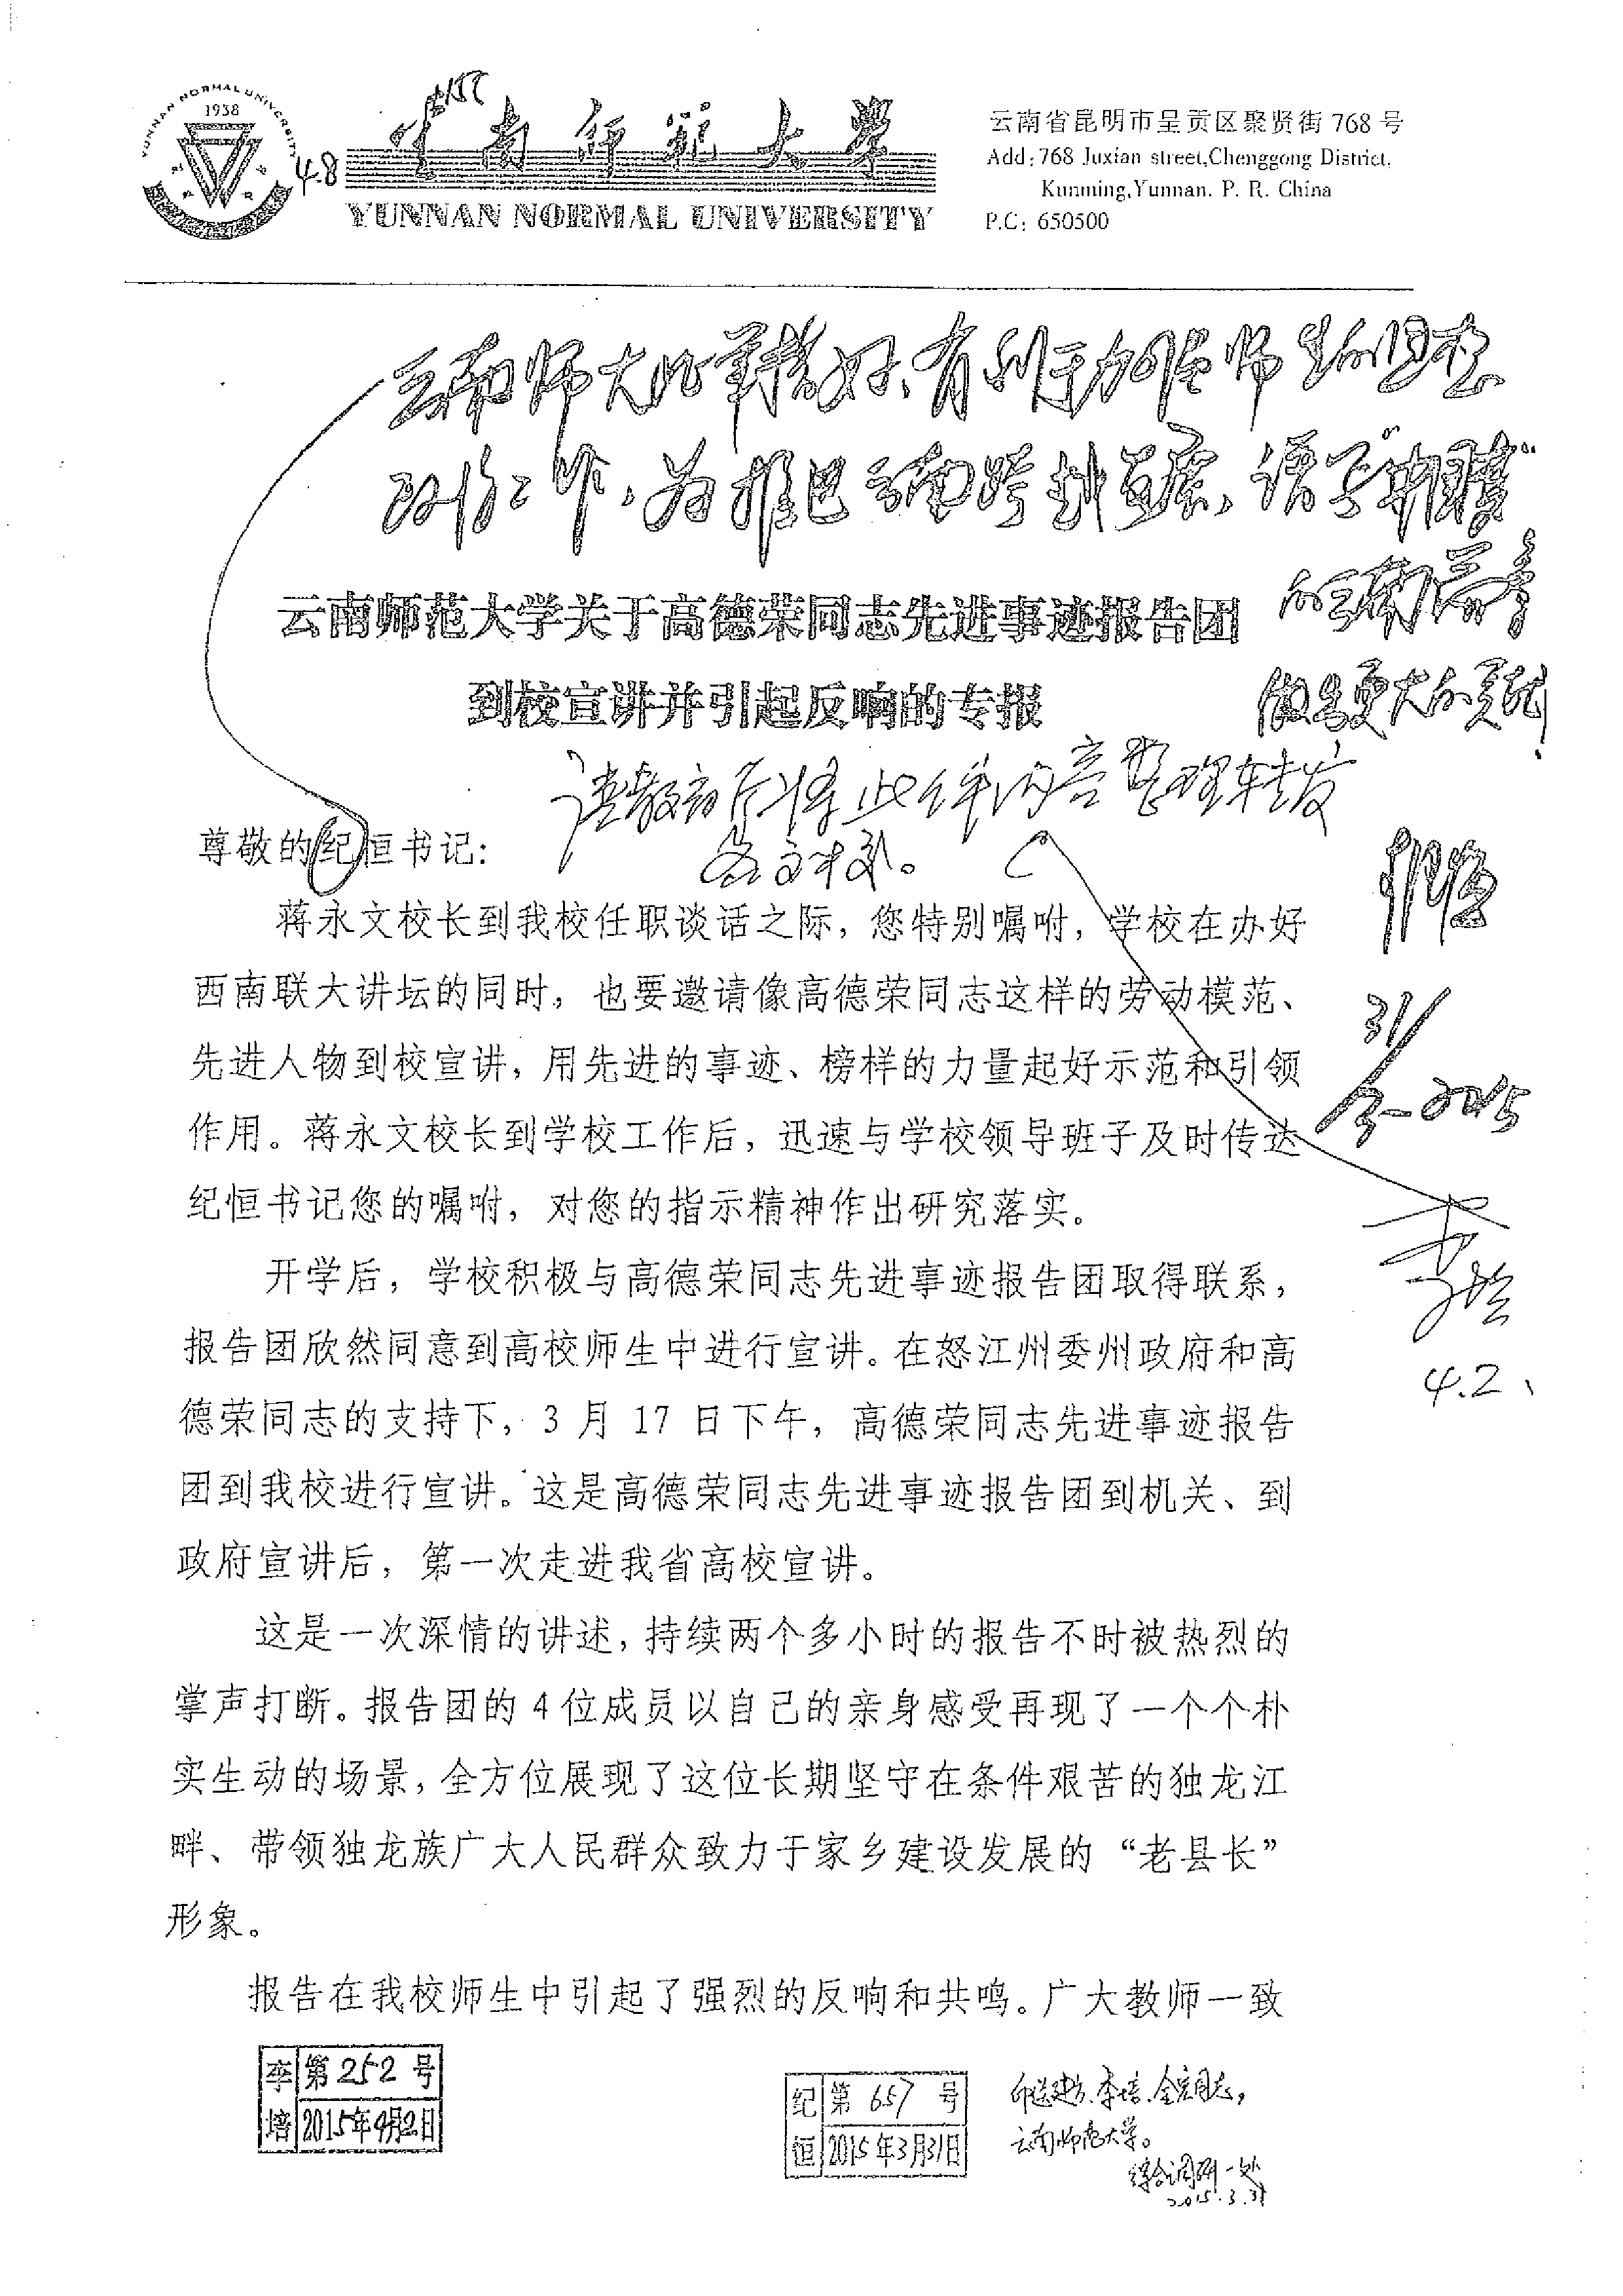 YUNNAN NORMAL UNIVERSITY
1938
4.8
云南师范大学
YUNNAN NORMAL UNIVERSITY
云南省昆明市呈贡区聚贤街 768 号
Add:768 Juxian street,Chenggong District,
Kunming,Yunnan. P. R. China
P.C: 650500
云南师大此举措好,有利于加强师生的思想
政治工作,为推进云南跨越发展、谱写
的云南篇章
做出更大的贡献
云南师范大学关于高德荣同志先进事迹报告团
到校宣讲并引起反响的专报
请教育厅将此件内容整理转发
各高校。
尊敬的纪恒书记:
蒋永文校长到我校任职谈话之际,您特别嘱咐,学校在办好
西南联大讲坛的同时,也要邀请像高德荣同志这样的劳动模范、
先进人物到校宣讲,用先进的事迹、榜样的力量起好示范和引领
作用。蒋永文校长到学校工作后,迅速与学校领导班子及时传达
纪恒书记您的嘱咐,对您的指示精神作出研究落实。
31/3-2015
李培
4.2
开学后,学校积极与高德荣同志先进事迹报告团取得联系,
报告团欣然同意到高校师生中进行宣讲。在怒江州委州政府和高
德荣同志的支持下,3 月 17 日下午,高德荣同志先进事迹报告
团到我校进行宣讲。这是高德荣同志先进事迹报告团到机关、到
政府宣讲后,第一次走进我省高校宣讲。
这是一次深情的讲述,持续两个多小时的报告不时被热烈的
掌声打断。报告团的 4 位成员以自己的亲身感受再现了一个个朴
实生动的场景,全方位展现了这位长期坚守在条件艰苦的独龙江
畔、带领独龙族广大人民群众致力于家乡建设发展的“老县长”
形象。
报告在我校师生中引起了强烈的反响和共鸣。广大教师一致
李培 第252号
2015年4月2日
纪恒 第657号
2015年3月31日
李培、同志,
云南师范大学。
综合调研一处
2015.3.31